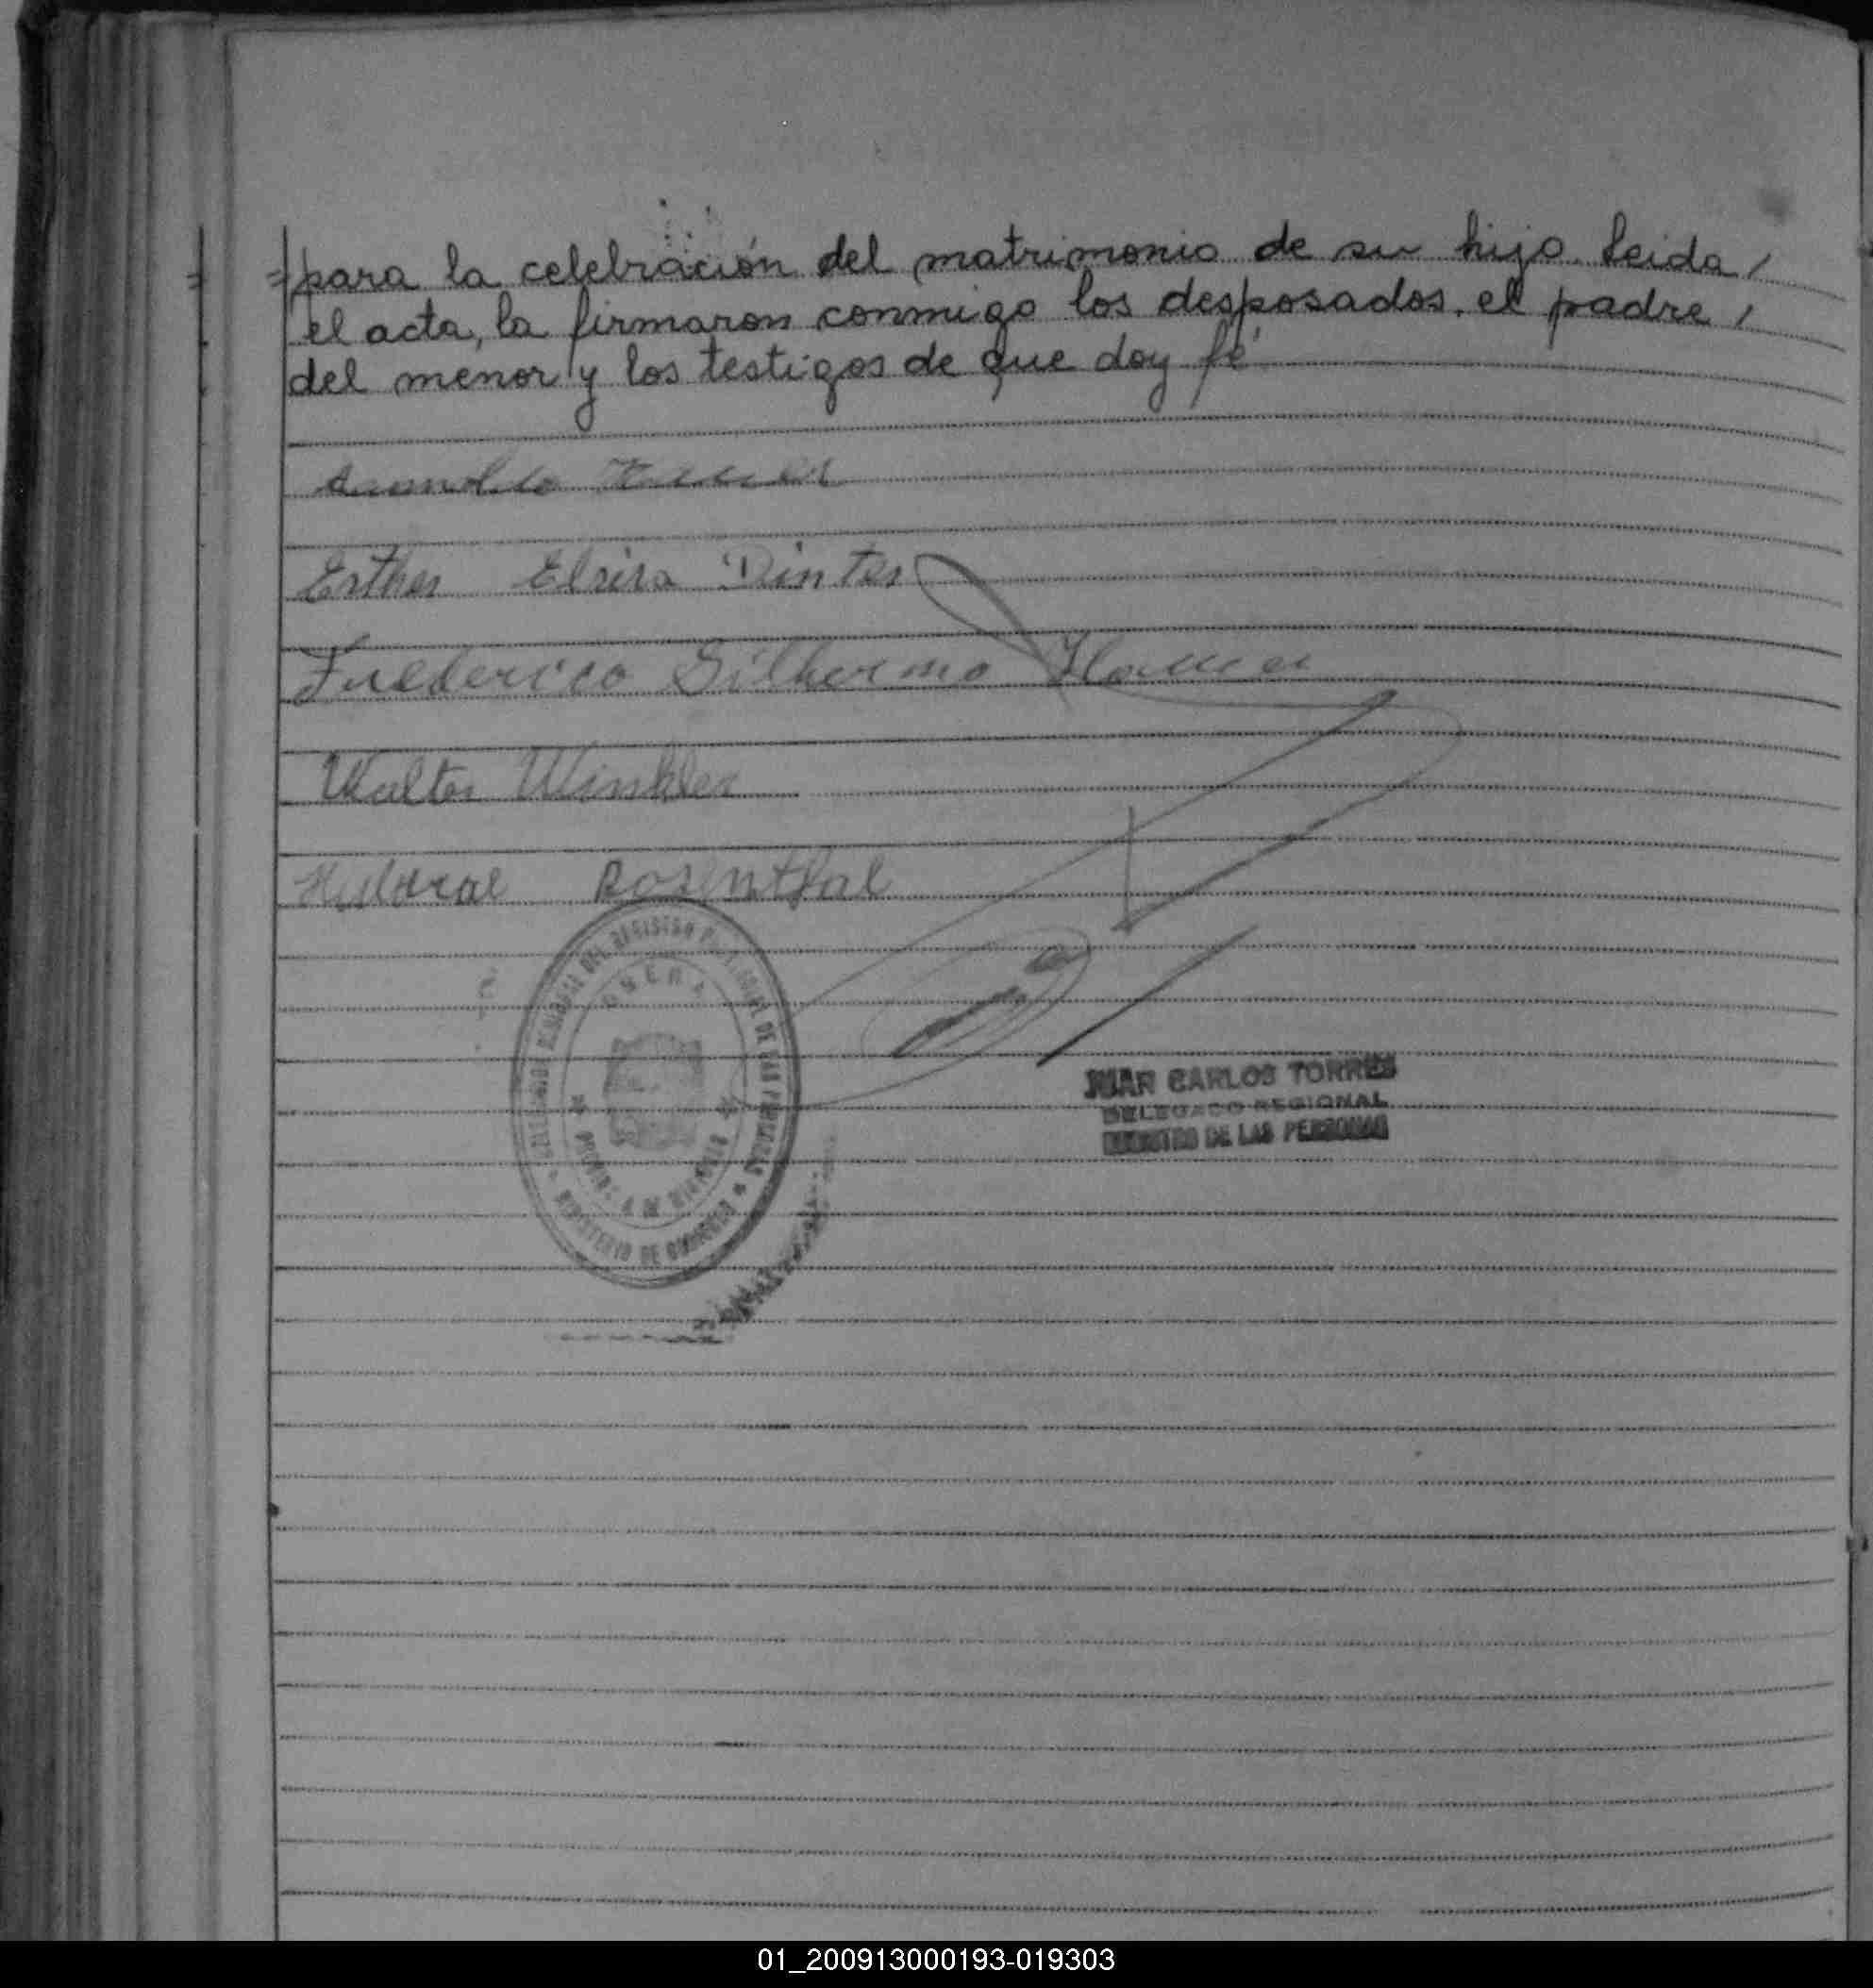 =para la celebración del matrimonio de su hijo. Leida /
el acta, la firmaron conmigo los desposados, el padre /
del menor y los testigos de que doy fé
Esther Elvira Dinter
Federico Gilhermo
Walter Winkler
Rosenthal
MINISTERIO DE GOBIERNO
JUAN CARLOS TORRES
DELEGADO REGIONAL
REGISTRO DE LAS PERSONAS
01_200913000193-019303